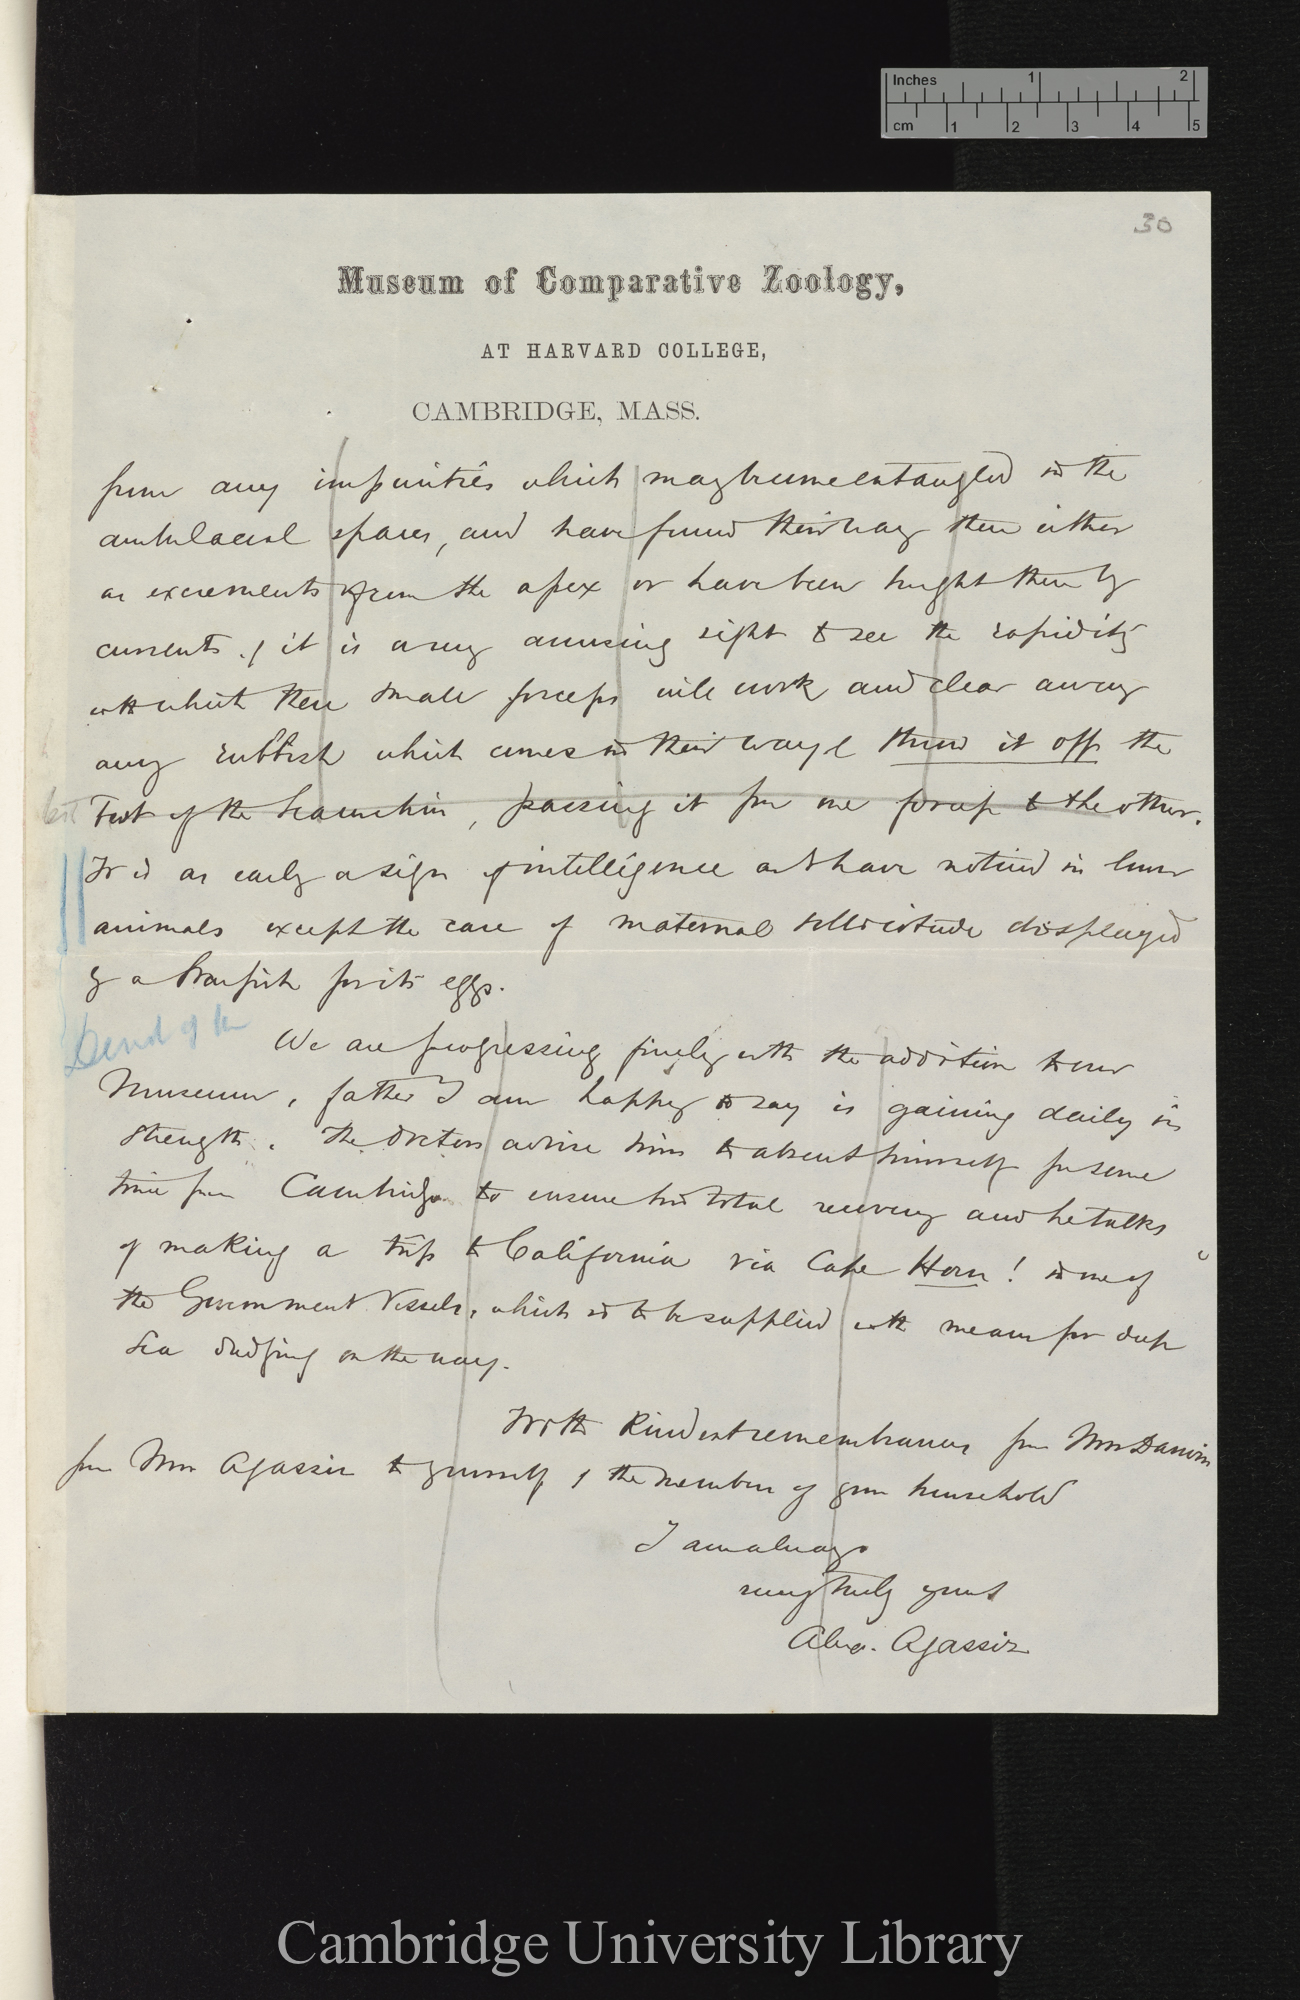 Inches 1 2
cm 1 2 3 4 5
30
Museum of Comparative Zoology,
AT HARVARD COLLEGE,
CAMBRIDGE, MASS.
from any impurities which may become entangled in the
ambulacral spaces, and have found their way there either
as excrements from the apex or have been brought there by
currents. & it is a very amusing sight to see the rapidity
with which these small forceps will work and clear away
any rubbish which comes in their way & throw it off the
Test of the Seaurchin, passing it from one forcep to the other.
It is as early a sign of intelligence as I have noticed in lower
animals except the care of maternal sollicitude displayed
by a Starfish for its eggs.
end of
We are progressing finely with the addition to our
Museum, father I am happy to say is gaining daily in
strength. The doctors advise him to absent himself for some
time from Cambridge to ensure his total recovery and he talks
of making a trip to California via Cape Horn! in one of
the Government Vessels, which is to be supplied with means for deep
Sea dredging on the way.
With kindest remembrances for Mrs Darwin
from Mrs Agassiz to yourself & the members of your household
I am always
very truly yours
Alex. Agassiz
Cambridge University Library